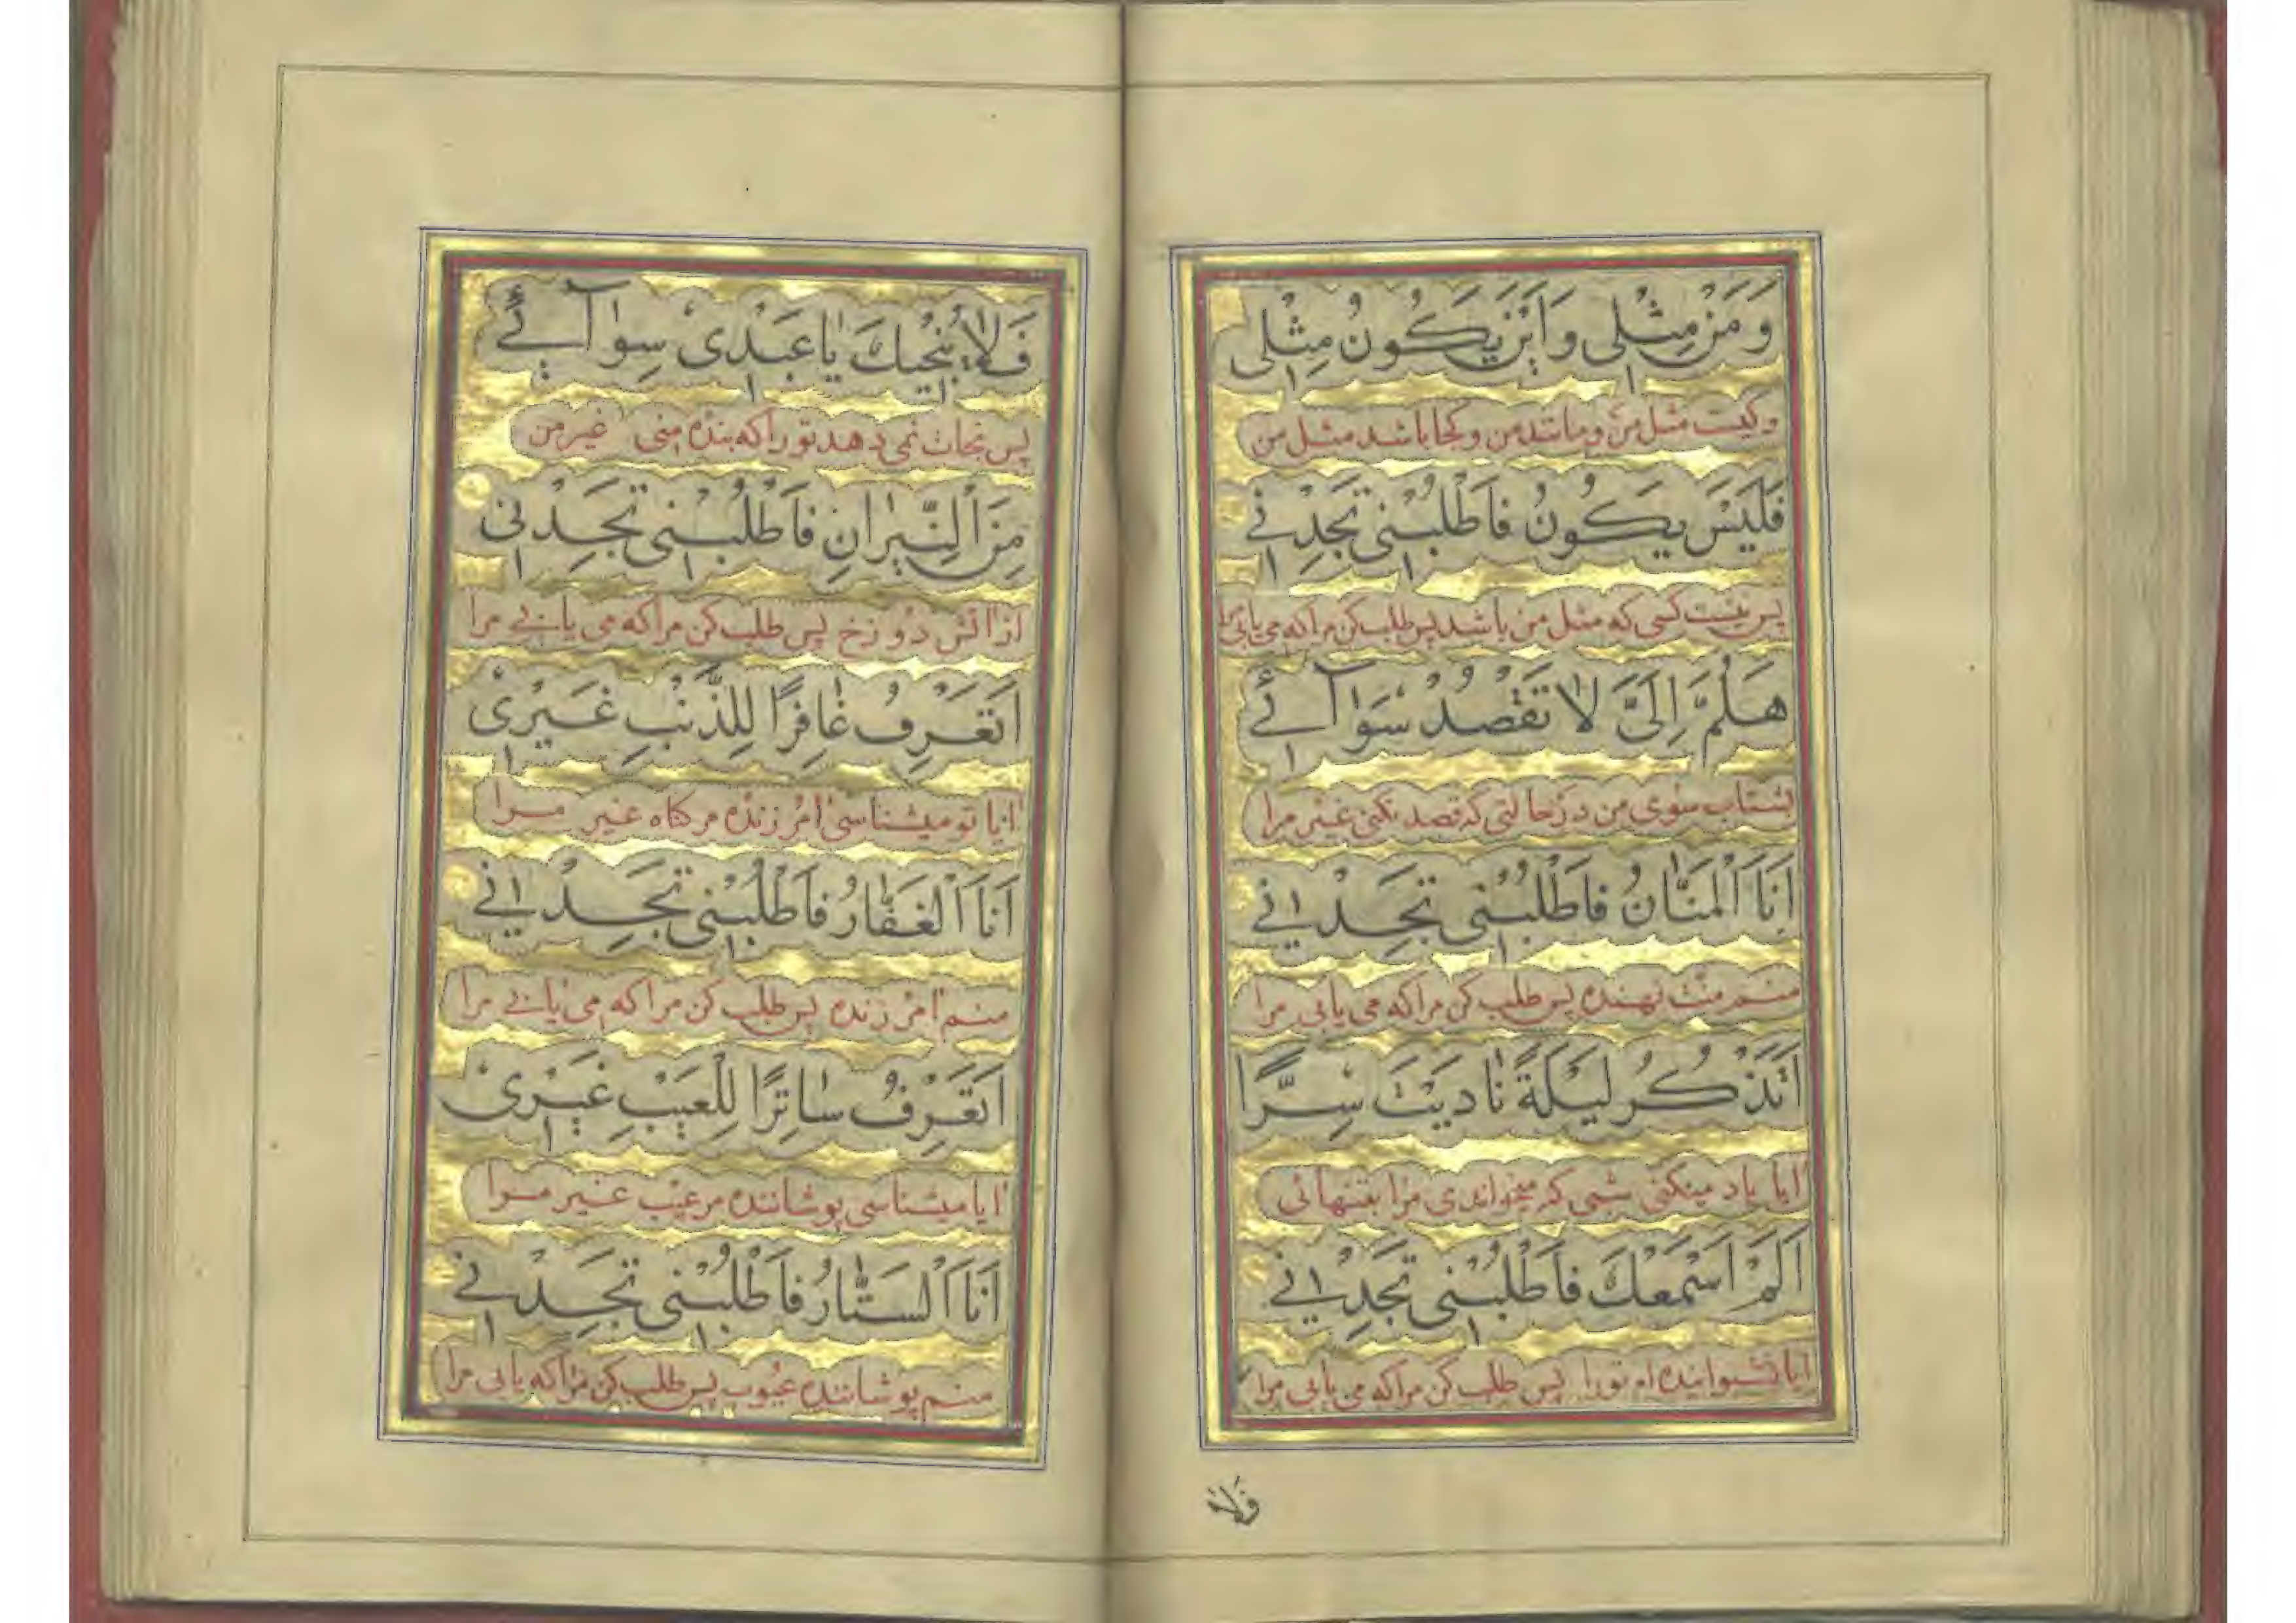 وَمَنْ مِثْلِی وَاَیْنَ یَکُونُ مِثْلِی
وکیست مثل من و مانند من و کجا باشد مثل من
فَلَیْسَ یَکُونُ فَاَطْلُبْنِی تَجِدْنِی
پس نیست کسی که مثل من باشد پس طلب کن مرا که می یابی مرا
هَلُمَّ اِلَیَّ لَا تَقْصُدْ سَوَآئِی
بشتاب سوی من در حالتی که قصد نکنی غیر مرا
اَنَا اَلْمَنَّانُ فَاَطْلُبْنِی تَجِدْنِی
منم منت نهنده پس طلب کن مرا که می یابی مرا
اَتَذْکُرُ لَیْلَةً نَادَیْتَ سِرًّا
ایا یاد میکنی شبی که میخواندی مرا بتنهائی
اَلَمْ اَسْمَعْكَ فَاَطْلُبْنِی تَجِدْنِی
ایا نشنوانیده ام تورا پس طلب کن مرا که می یابی مرا
فَلَا
فَلَا یُنْجِیكَ یَا عَبْدِی سِوَآئِی
پس نجات نمی دهد تو را که بنده منی غیر من
مِنَ اَلنِّیرَانِ فَاَطْلُبْنِی تَجِدْنِی
از اتش دوزخ پس طلب کن مرا که می یابی مرا
اَتَعْرِفُ غَافِرًا لِلذَّنْبِ غَیْرِی
ایا تو میشناسی امرزنده مر کناه غیر مرا
اَنَا اَلْغَفَّارُ فَاَطْلُبْنِی تَجِدْنِی
منم امرزنده پس طلب کن مرا که می یابی مرا
اَتَعْرِفُ سَاتِرًا لِلْعَیْبِ غَیْرِی
ایا میشناسی پوشاننده مر عیب غیر مرا
اَنَا اَلسَّتَّارُ فَاَطْلُبْنِی تَجِدْنِی
منم پوشاننده عیوب پس طلب کن مرا که یابی مرا